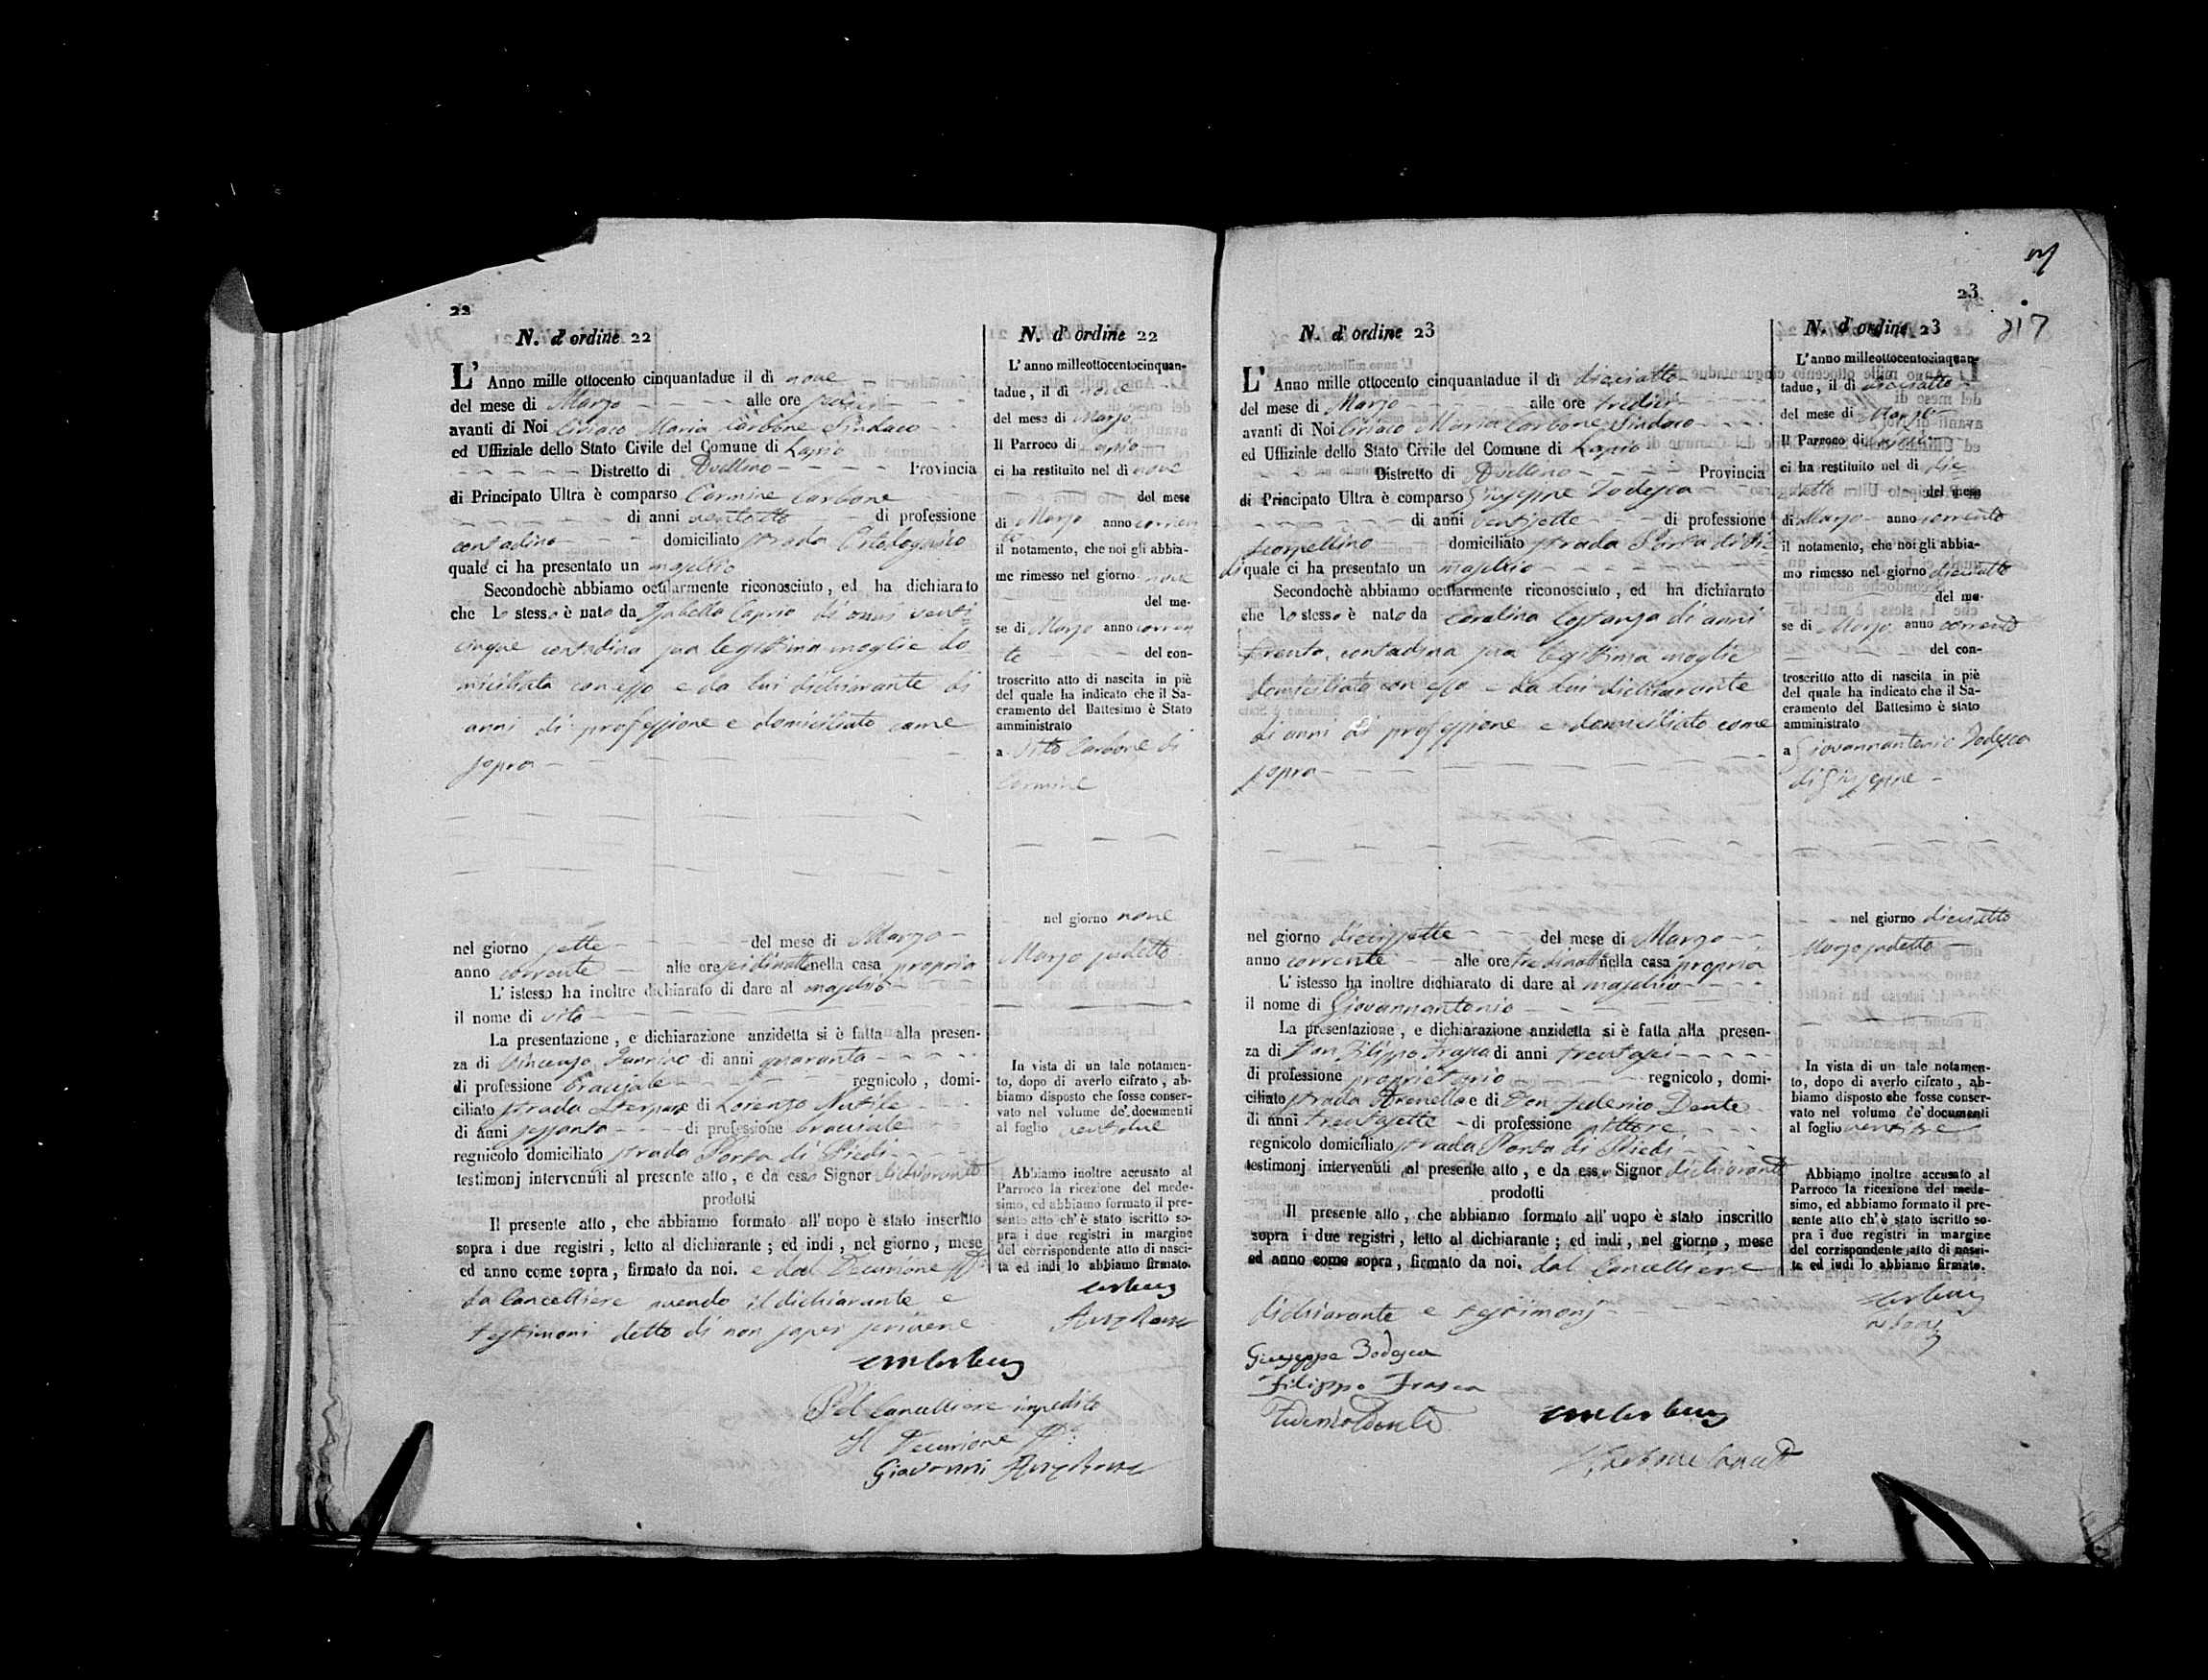 22
N. d'ordine 22
L' Anno mille ottocento cinquantadue il dì nove
del mese di Marzo alle ore sedici
avanti di Noi Ciriaco Maria Carbone Sindaco
ed Uffiziale dello Stato Civile del Comune di Lapio
Distretto di Avellino Provincia
di Principato Ultra è comparso Carmine Carbone
di anni ventotto di professione
contadino domiciliato strada
quale ci ha presentato un maschio
Secondochè abbiamo ocularmente riconosciuto, ed ha dichiarato
che lo stesso è nato da Isabella Caprio di anni venti
cinque contadina sua legittima moglie do
miciliata con esso e da lui dichiarante di
anni di professione e domiciliato come
sopra
nel giorno sette del mese di Marzo
anno corrente alle ore sei di notte nella casa propria
L' istesso ha inoltre dichiarato di dare al maschio
il nome di Vito
La presentazione, e dichiarazione anzidetta si è fatta alla presen-
za di Vincenzo di anni quaranta
di professione bracciale regnicolo, domi-
ciliato strada e di Lorenzo
di anni sessanta di professione bracciale
regnicolo domiciliato strada Porta di Piedi
testimonj intervenuti al presente atto, e da esso Signor dichiarante
prodotti
Il presente atto, che abbiamo formato all' uopo è stato inscritto
sopra i due registri, letto al dichiarante; ed indi, nel giorno, mese
ed anno come sopra, firmato da noi. e dal Decurione
da Cancelliere avendo il dichiarante e
testimoni detto di non saper scrivere
Pel Cancelliere impedito
Il Decurione
Giovanni
N. d'ordine 22
L' anno milleottocentocinquan-
tadue, il dì nove
del mese di Marzo
Il Parroco di Lapio
ci ha restituito nel dì nove
del mese
di Marzo anno corren
te
il notamento, che noi gli abbia-
mo rimesso nel giorno nove
del me-
se di Marzo anno corren
te del con-
troscritto atto di nascita in piè
del quale ha indicato che il Sa-
cramento del Battesimo è Stato
amministrato
a Vito Carbone di
Carmine
nel giorno nove
Marzo sudetto
In vista di un tale notamen-
to, dopo di averlo cifrato, ab-
biamo disposto che fosse conser-
vato nel volume de' documenti
al foglio ventidue
Abbiamo inoltre accusato al
Parroco la ricezione del mede-
simo, ed abbiamo formato il pre-
sente atto ch' è stato iscritto so-
pra i due registri in margine
del corrispondente atto di nasci-
ta ed indi lo abbiamo firmato.
23
217
N. d'ordine 23
L' Anno mille ottocento cinquantadue il dì diciisatto
del mese di Marzo alle ore tredici
avanti di Noi Ciriaco Maria Carbone Sindaco
ed Uffiziale dello Stato Civile del Comune di Lapio
Distretto di Avellino Provincia
di Principato Ultra è comparso Giuseppe Todesca
di anni ventisette di professione
scarpellino domiciliato strada Porta di Pie
di quale ci ha presentato un maschio
Secondochè abbiamo ocularmente riconosciuto, ed ha dichiarato
che lo stesso è nato da Carolina Costanza di anni
trenta, contadina sua legittima moglie
domiciliata con esso e da lui dichiarante
di anni di professione e domiciliato come
sopra
nel giorno diecissette del mese di Marzo
anno corrente alle ore tre di notte nella casa propria
L' istesso ha inoltre dichiarato di dare al maschio
il nome di Giovannantonio
La presentazione, e dichiarazione anzidetta si è fatta alla presen-
za di Don Filippo Frasca di anni trentasei
di professione proprietario regnicolo, domi-
ciliato strada Arenella e di Don Federico Dente
di anni trentasette di professione pittore
regnicolo domiciliato strada Porta di Piedi
testimonj intervenuti al presente atto, e da esso Signor dichiarante
prodotti
Il presente atto, che abbiamo formato all' uopo è stato inscritto
sopra i due registri, letto al dichiarante; ed indi, nel giorno, mese
ed anno come sopra, firmato da noi. dal Cancelliere
dichiarante e testimonj
Giuseppe Todesca
Filippo Frasca
Federico Dente
N. d'ordine 23
L' anno milleottocentocinquan-
tadue, il dì diciisatto
del mese di Marzo
Il Parroco di Lapio
ci ha restituito nel dì dic
del mese
di Marzo anno corrente
il notamento, che noi gli abbia-
mo rimesso nel giorno diciisatto
del me-
se di Marzo anno corrente
del con-
troscritto atto di nascita in piè
del quale ha indicato che il Sa-
cramento del Battesimo è stato
amministrato
a Giovannantonio Todesca
di Giuseppe
nel giorno diciisatto
Marzo sudetto
In vista di un tale notamen-
to, dopo di averlo cifrato, ab-
biamo disposto che fosse conser-
vato nel volume de' documenti
al foglio ventitre
Abbiamo inoltre accusato al
Parroco la ricezione del mede-
simo, ed abbiamo formato il pre-
sente atto ch' è stato iscritto so-
pra i due registri in margine
del corrispondente atto di nasci-
ta ed indi lo abbiamo firmato.